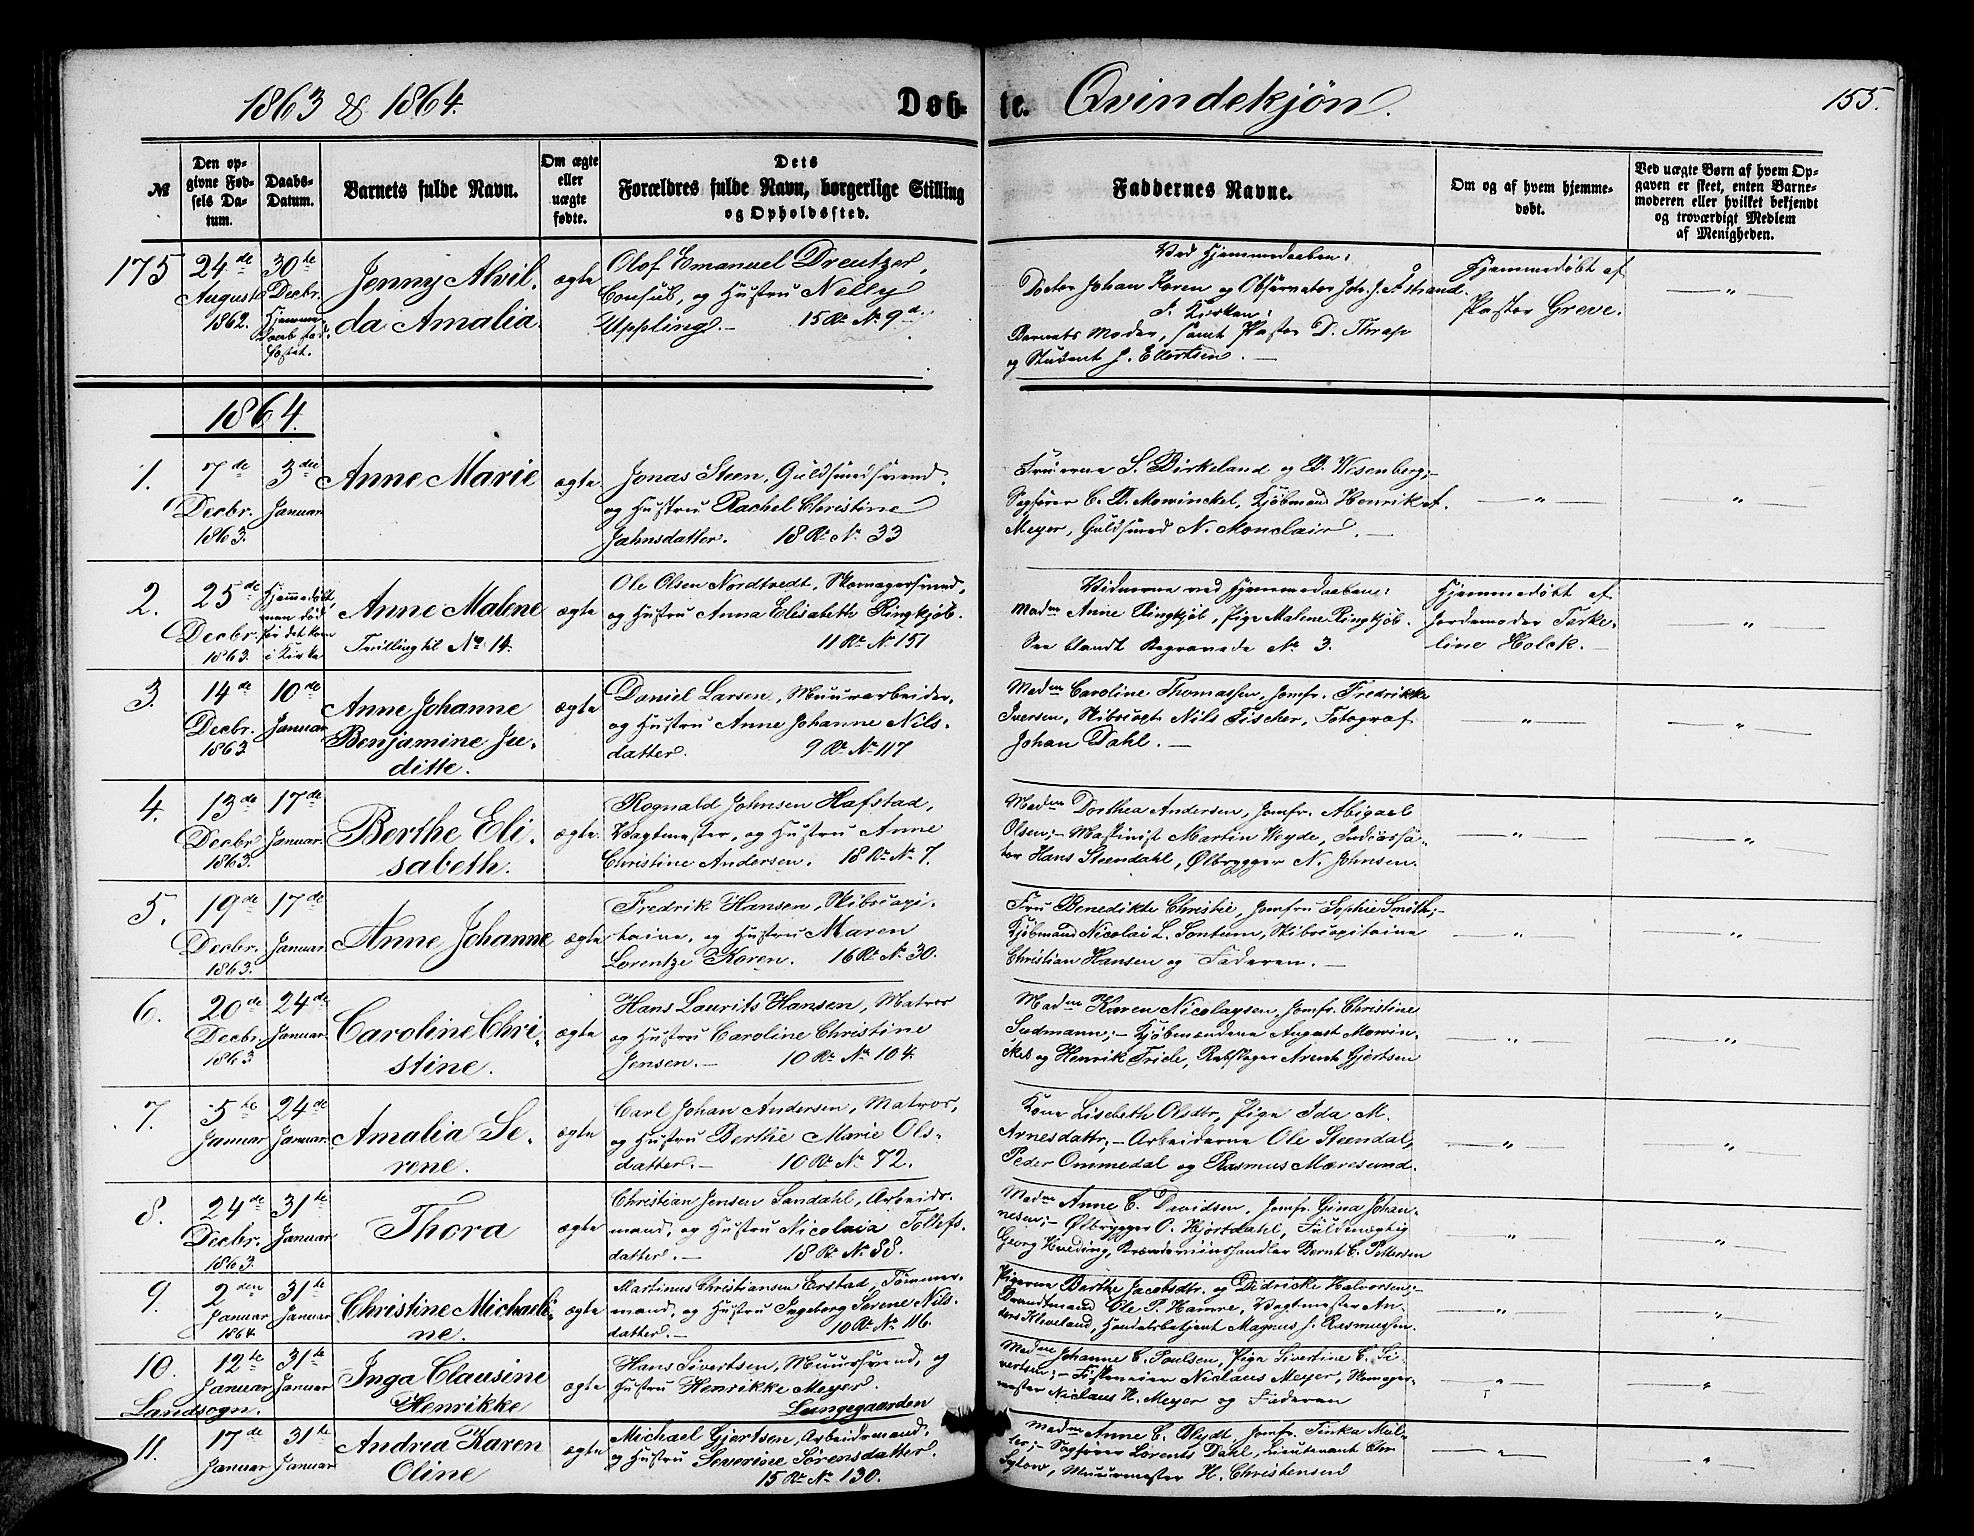 1863 & 1864.
Døb-
te.
Qvindekjøn.
155.
№
Den op-
givne Fød-
sels Da-
tum.
Daabs-
Datum.
Barnets fulde Navn.
Om ægte
eller
uægte
fødte.
Dets
Forældres fulde Navn, borgerlige Stilling
og Opholdssted.
Faddernes Navne.
Om og af hvem hjemme-
døbt.
Ved uægte Børn af hvem Op-
gaven er skeet, enten Barne-
moderen eller hvilket bekjendt
og troværdigt Medlem
af Menigheden.
175
24de
August
1862.
30te
Decbr.
Hjemme-
Jenny Alvil-
da Amalia.
ægte
Olof Emanuel Dreutzer,
Consul, og Hustru Nelly
Uppling. — 15 R. № 9a.
Ved Hjemmedaaben:
Doctor Johan Koren og Observator Joh. J. Åstrand.
I Kirken:
Barnets Moder, samt Pastor D. Thrap
og Student J. Ellertsen. —
Hjemmedøbt af
Pastor Greve.
— " —
1864.
1.
7de
Decbr.
1863.
3die
Januar
Anne Marie
ægte
Jonas Steen, Guldsmedsvend.
og Hustru Rachel Christine
Jahnsdatter. 18 R. № 33
Fruerne S. Birkeland og B. Wesenberg;-
Sagfører C. B. Mowinckel, Kjøbmand Henrik af.
Meyer, Guldsmed N. Monclair. —
— " —
"
2.
25de
Decbr.
1863.
Hjemmedøbt,
men død
før det kom
i Kirke
Anne Malene
Tvilling til № 14.
ægte
Ole Olsen Nordtvedt, Skomagersvend,
og Hustru Anna Elisabeth Ringkjøb.
11 R. № 151
Vidnerne ved Hjemmedaaben:
Madm Anne Ringkjøb, Pige Malene Ringkjøb.
See blandt Begravede № 3.
Hjemmedøbt af
Jordemoder Terke-
line Holck. —
"
3.
14de
Decbr.
1863.
10de
Januar
Anne Johanne
Benjamine Ju-
ditte.
ægte
Daniel Larsen, Muurarbeider,
og Hustru Anne Johanne Nils-
datter. 9 R. № 117
Madm Caroline Thomassen, Jomfr. Fredrikke
Iversen, Skibsvagt Nils Fischer, Fotograf
Johan Dahl. —
"
— "
4.
13de
Decbr.
1863.
17de
Januar.
Berthe Eli-
sabeth.
ægte.
Rognald Johnsen Hafstad,
Vagtmester, og Hustru Anne
Christine Andersen. 18 R. № 7.
Madm Dorthea Andersen, Jomfr. Abigael
Olsen;- Maskinist Martin Weyde, Indiassa-
tor Hans Steendahl, Ølbrygger N. Johnsen.
— " —
— " —
5.
19de
Decbr.
1863.
17de
Januar.
Anne Johanne
ægte
Fredrik Hansen, Skibscapi-
taine, og Hustru Maren
Lorentze Koren. 16 R. № 30.
Fru Benedikte Christie, Jomfru Sophie Smith;-
Kjøbmand Nicolai L. Sontum, Skibscapitaine
Christian Hansen og Faderen. —
— " —
— " —
6.
20de
Decbr.
1863
24de
Januar.
Caroline Chri-
stine.
ægte
Hans Laurits Hansen, Matros
og Hustru Caroline Christine
Jensen. — 10 R. № 104.
Madm Karen Nicolaysen, Jomfr. Christine
Sudmann;- Kjøbmændene August Mowin-
kel og Henrik Friele, Rebslager Arent Gjertsen
— " —
— " —
7.
5te
Januar
24de
Januar.
Amalia Se-
rene.
ægte
Carl Johan Andersen, Matros,
og Hustru Berthe Marie Ols-
datter. — 10 R. № 72.
Kone Lisebeth Olsdtr, Pige Ida M.
Arnesdattr;- Arbeiderne Ole Steendal,
Peder Ommedal og Rasmus Møresund.
— " —
— " —
8.
24de
Decbr.
1863.
31te
Januar
Thora
ægte
Christian Jensen Sandahl, Arbeids-
mand, og Hustru Nicolaia Tollefs-
datter. — 18 R. № 88.
Madm Anne C. Davidsen, Jomfr. Gina Johan-
nesen;- Ølbrygger O. Hjortdahl, Fuldmægtig
Georg Hveding, Brændeviinshandler Bernt C. Pettersen
— " —
— " —
9.
2den
Januar
1864.
31te
Januar
Christine Michaeli-
ne.
ægte
Martinus Christiansen Erstad, Tømmer-
mand, og Hustru Ingeborg Serene Nils-
datter. — 10 R. № 116.
Pigerne Berthe Jacobsdtr. og Didricke Halvorsen;-
Brandtmand Ole P. Hamre, Vagtmester An-
ders Kleveland, Handelsbetjent Magnus J. Rasmussen.
— " —
"
10.
Landsogn.
12te
Januar
31te
Januar
Inga Clausine
Henrikke
ægte
Hans Sivertsen, Muursvend, og
Hustru Henrikke Meyer.
Lungegaarden
Madm Johanne C. Poulsen, Pige Sivertine C. Si-
vertsen;- Fiskeveier Niclaus Meyer, Skomager-
mester Niclaus H. Meyer og Faderen
— " —
"
11.
17de
Januar
31te
Januar
Andrea Karen
Oline
ægte
Michael Gjertsen, Arbeidsmand,
og Hustru Severine Sørensdatter.
15 R. № 130.
Madm Anne C. Blydt, Jomfr. Tinka Mül-
ler;- Sagfører Lorents Dahl, Lieutenant Chr
Sylow, Muurmester H. Christensen
— " —
"